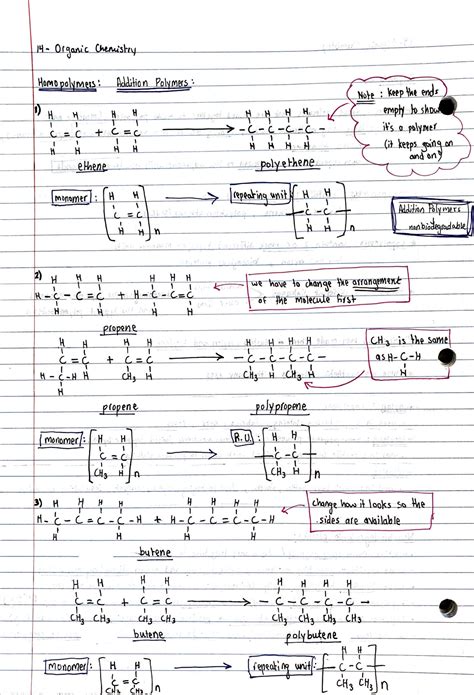 14 - Organic Chemistry
Homopolymers: Addition Polymers:
Note: keep the ends
empty to show
it's a polymer
(it keeps going on
and on)
1)
H H H H H H H H
C = C + C = C → -C-C-C-C-
H H H H H H H H
ethene polyethene
monomer: H H
C = C
H H n
repeating unit: H H
-C-C-
H H n
Addition Polymers
nonbiodegradable
2)
H H H H H H
H-C-C=C + H-C-C=C
we have to change the arrangement
of the molecule first
propene
H H H H H H H H
C = C + C = C → -C-C-C-C-
H-C-H H CH3 H CH3 H CH3 H
H
CH3 is the same
as H-C-H
H
propene polypropene
monomer: H H
C = C
CH3 H n
R.U.: H H
-C-C-
CH3 H n
3)
H H H H H H H H
H-C-C=C-C-H + H-C-C=C-C-H
H H H H
change how it looks so the
sides are available
butene
H H H H H H H H
C = C + C = C → -C-C-C-C-
CH3 CH3 CH3 CH3 CH3 CH3 CH3 CH3
butene polybutene
monomer: H H
C = C
CH3 CH3 n
repeating unit: H H
-C-C-
CH3 CH3 n